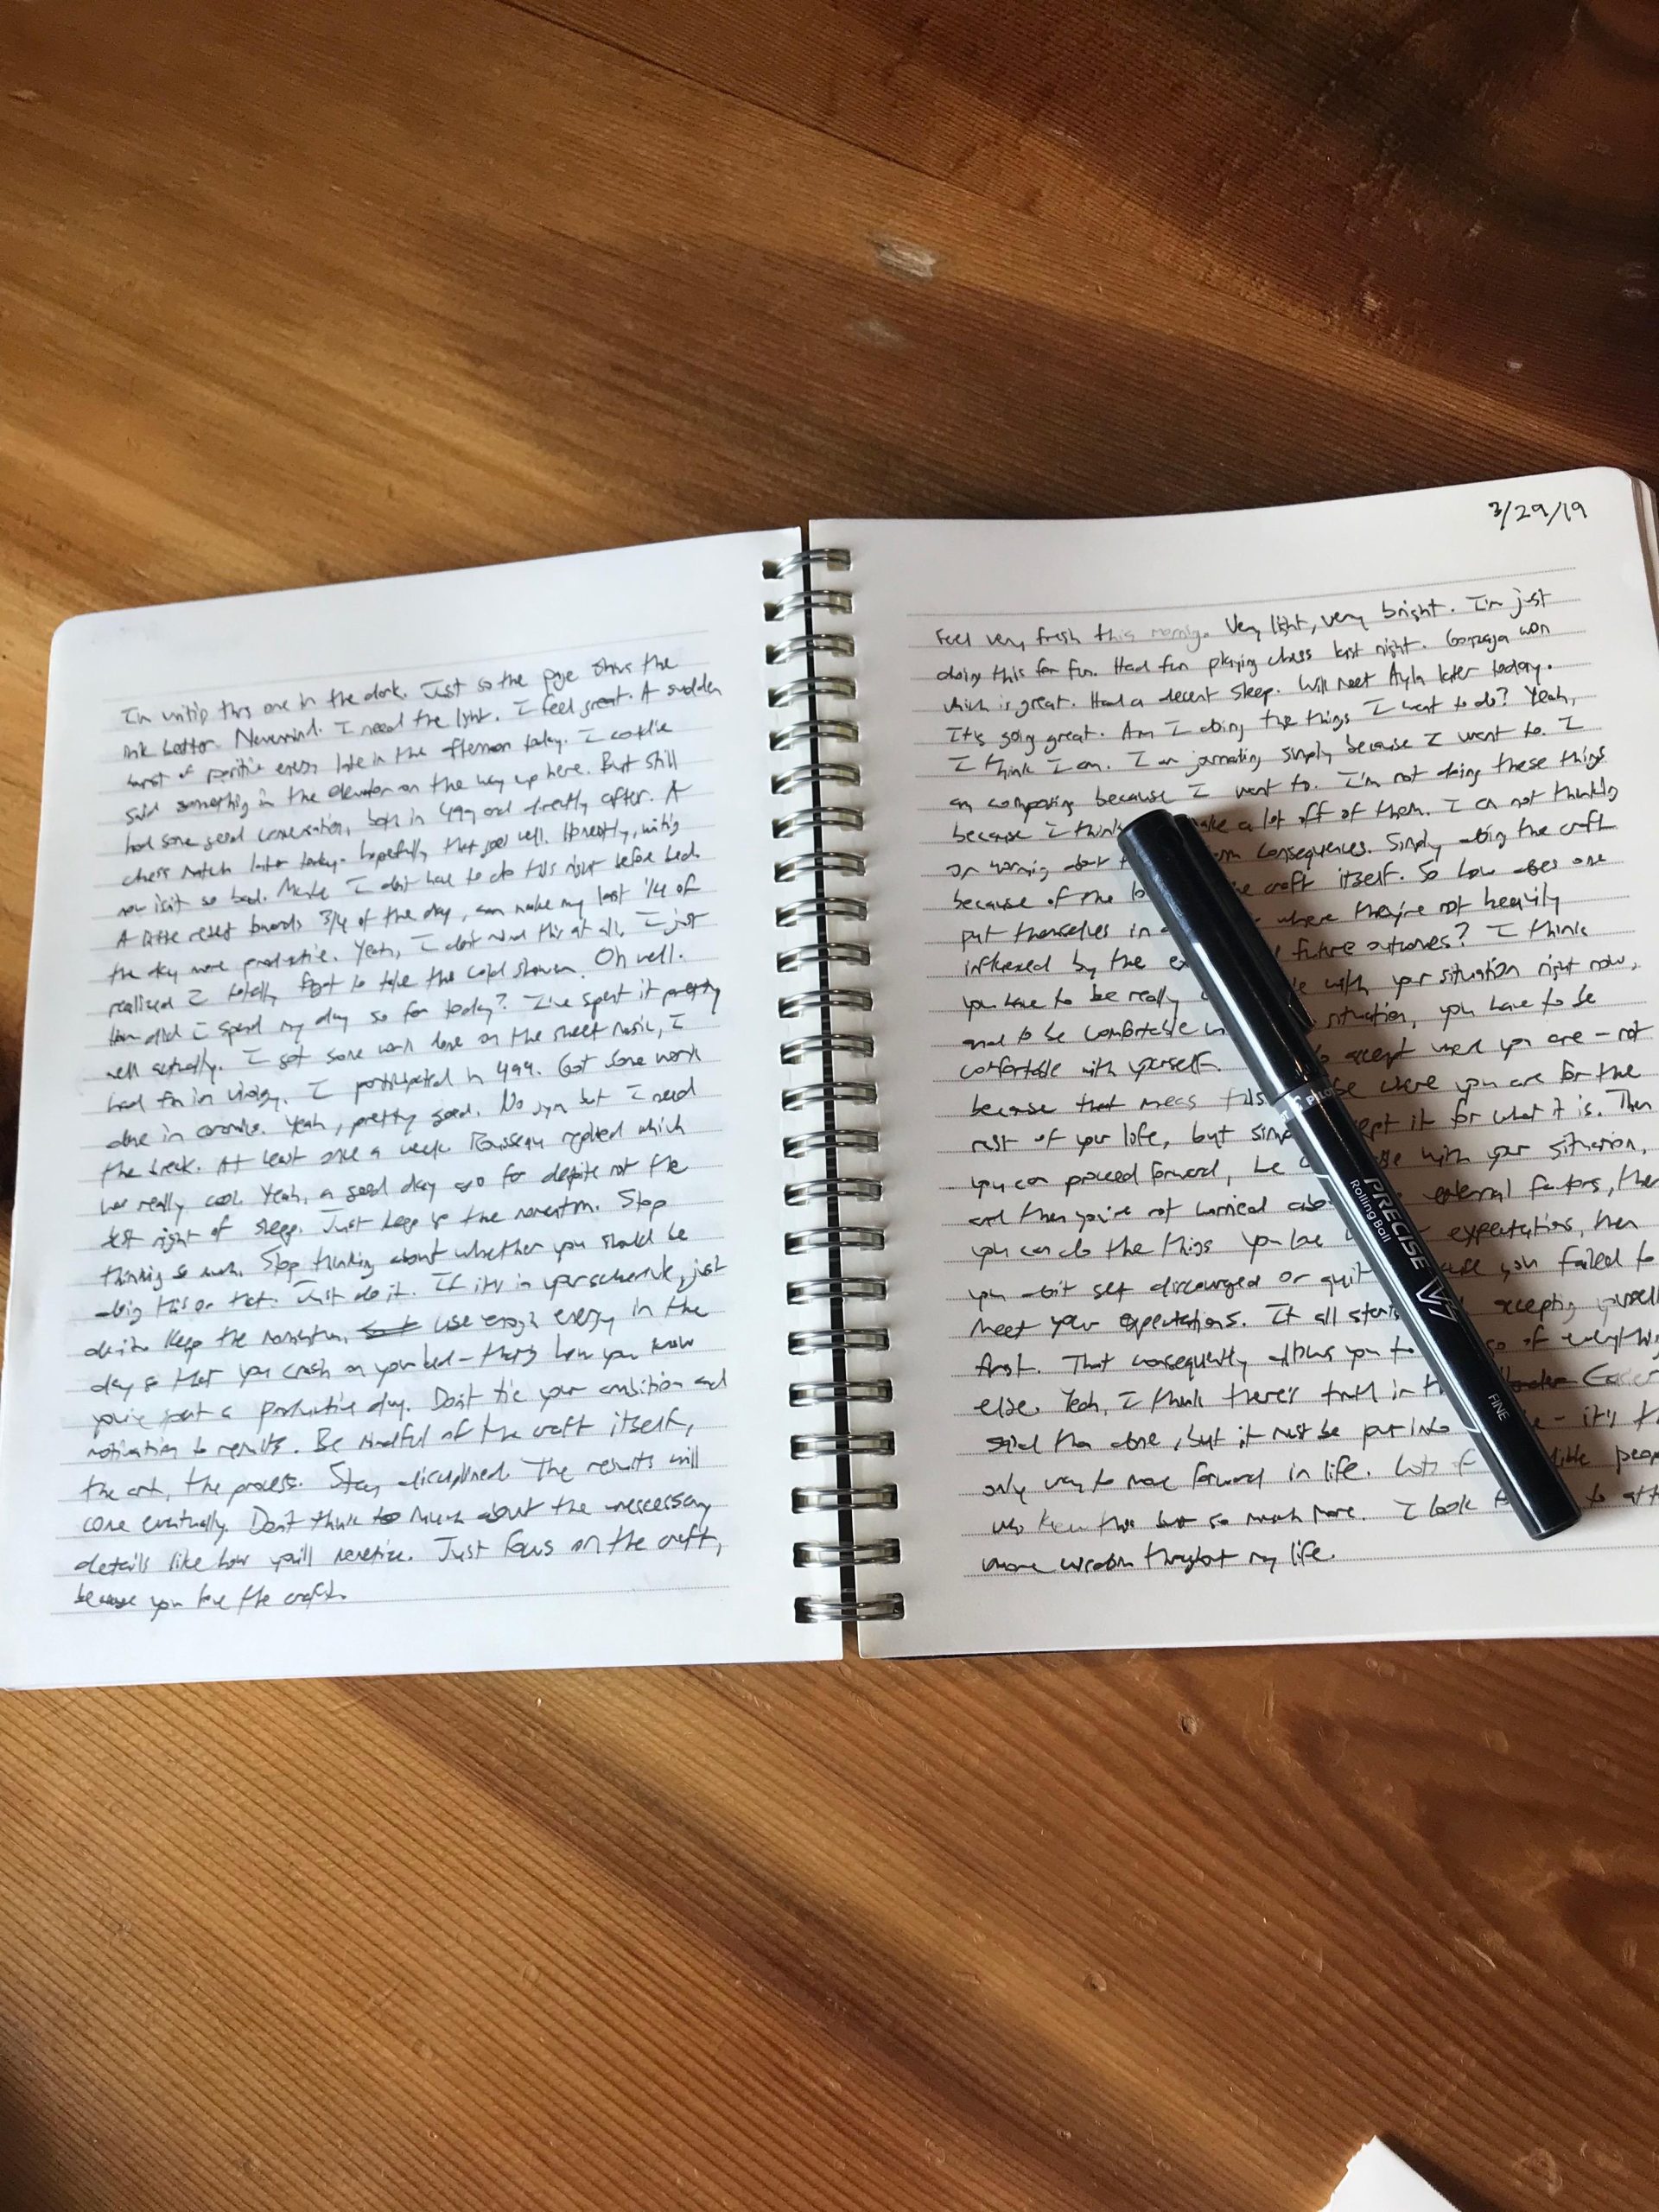 I'm writing this one in the dark. Just so the page shows the
ink better. Nevermind. I need the light. I feel great. A sudden
burst of positive energy late in the afternoon today. I could've
said something in the elevator on the way up here. But still
had some good conversation, both in 499 and directly after. A
chess match later today. Hopefully that goes well. Honestly, writing
now isn't so bad. Maybe I don't have to do this right before bed.
A little reset towards 3/4 of the day, can make my last 1/4 of
the day more productive. Yeah, I don't mind this at all. I just
realized I totally forgot to take the cold shower. Oh well.
How did I spend my day so far today? I've spent it pretty
well actually. I got some work done on the sheet music, I
had fun in I participated in 499. Got some work
done in Yeah, pretty good. No gym but I need
the break. At least once a week. Rousseau replied which
was really cool. Yeah, a good day so far despite not the
best night of sleep. Just keep up the momentum. Stop
thinking so much. Stop thinking about whether you should be
doing this or that. Just do it. If it's in your schedule, just
do it. Keep the momentum, use enough energy in the
day so that you crash on your bed - that's how you know
you've spent a productive day. Don't tie your ambition and
motivation to results. Be mindful of the craft itself,
the art, the process. Stay disciplined. The results will
come eventually. Don't think too much about the unnecessary
details like how you'll monetize. Just focus on the craft,
because you love the craft.
3/29/19
Feel very fresh this morning. Very light, very bright. I'm just
doing this for fun. Had fun playing chess last night. Gonzaga won
which is great. Had a decent sleep. Will meet Ayla later today.
It's going great. Am I doing the things I want to do? Yeah,
I think I am. I am journaling simply because I want to. I
am composing because I want to. I'm not doing these things
because I think make a lot off of them. I am not thinking
or worrying about consequences. Simply doing the craft
because of the craft itself. So how does one
put themselves in where they're not heavily
influenced by the future outcomes? I think
you have to be really with your situation right now,
and to be comfortable situation, you have to be
comfortable with yourself. accept where you are - not
because that means where you are for the
rest of your life, but it for what it is. Then
you can proceed forward, be with your situation,
and then you're not worried external factors, then
you can do the things you love expectations, then
you don't get discouraged or quit you failed to
meet your expectations. It all accepting
first. That consequently allows you to of
else. Yeah, I think there's truth in Easier
said than done, but it must be put into - it's
only way to move forward in life. Lots
who knew this but so much more. I look to
more wisdom throughout my life.
PILOT
PRECISE V7
Rolling Ball
FINE